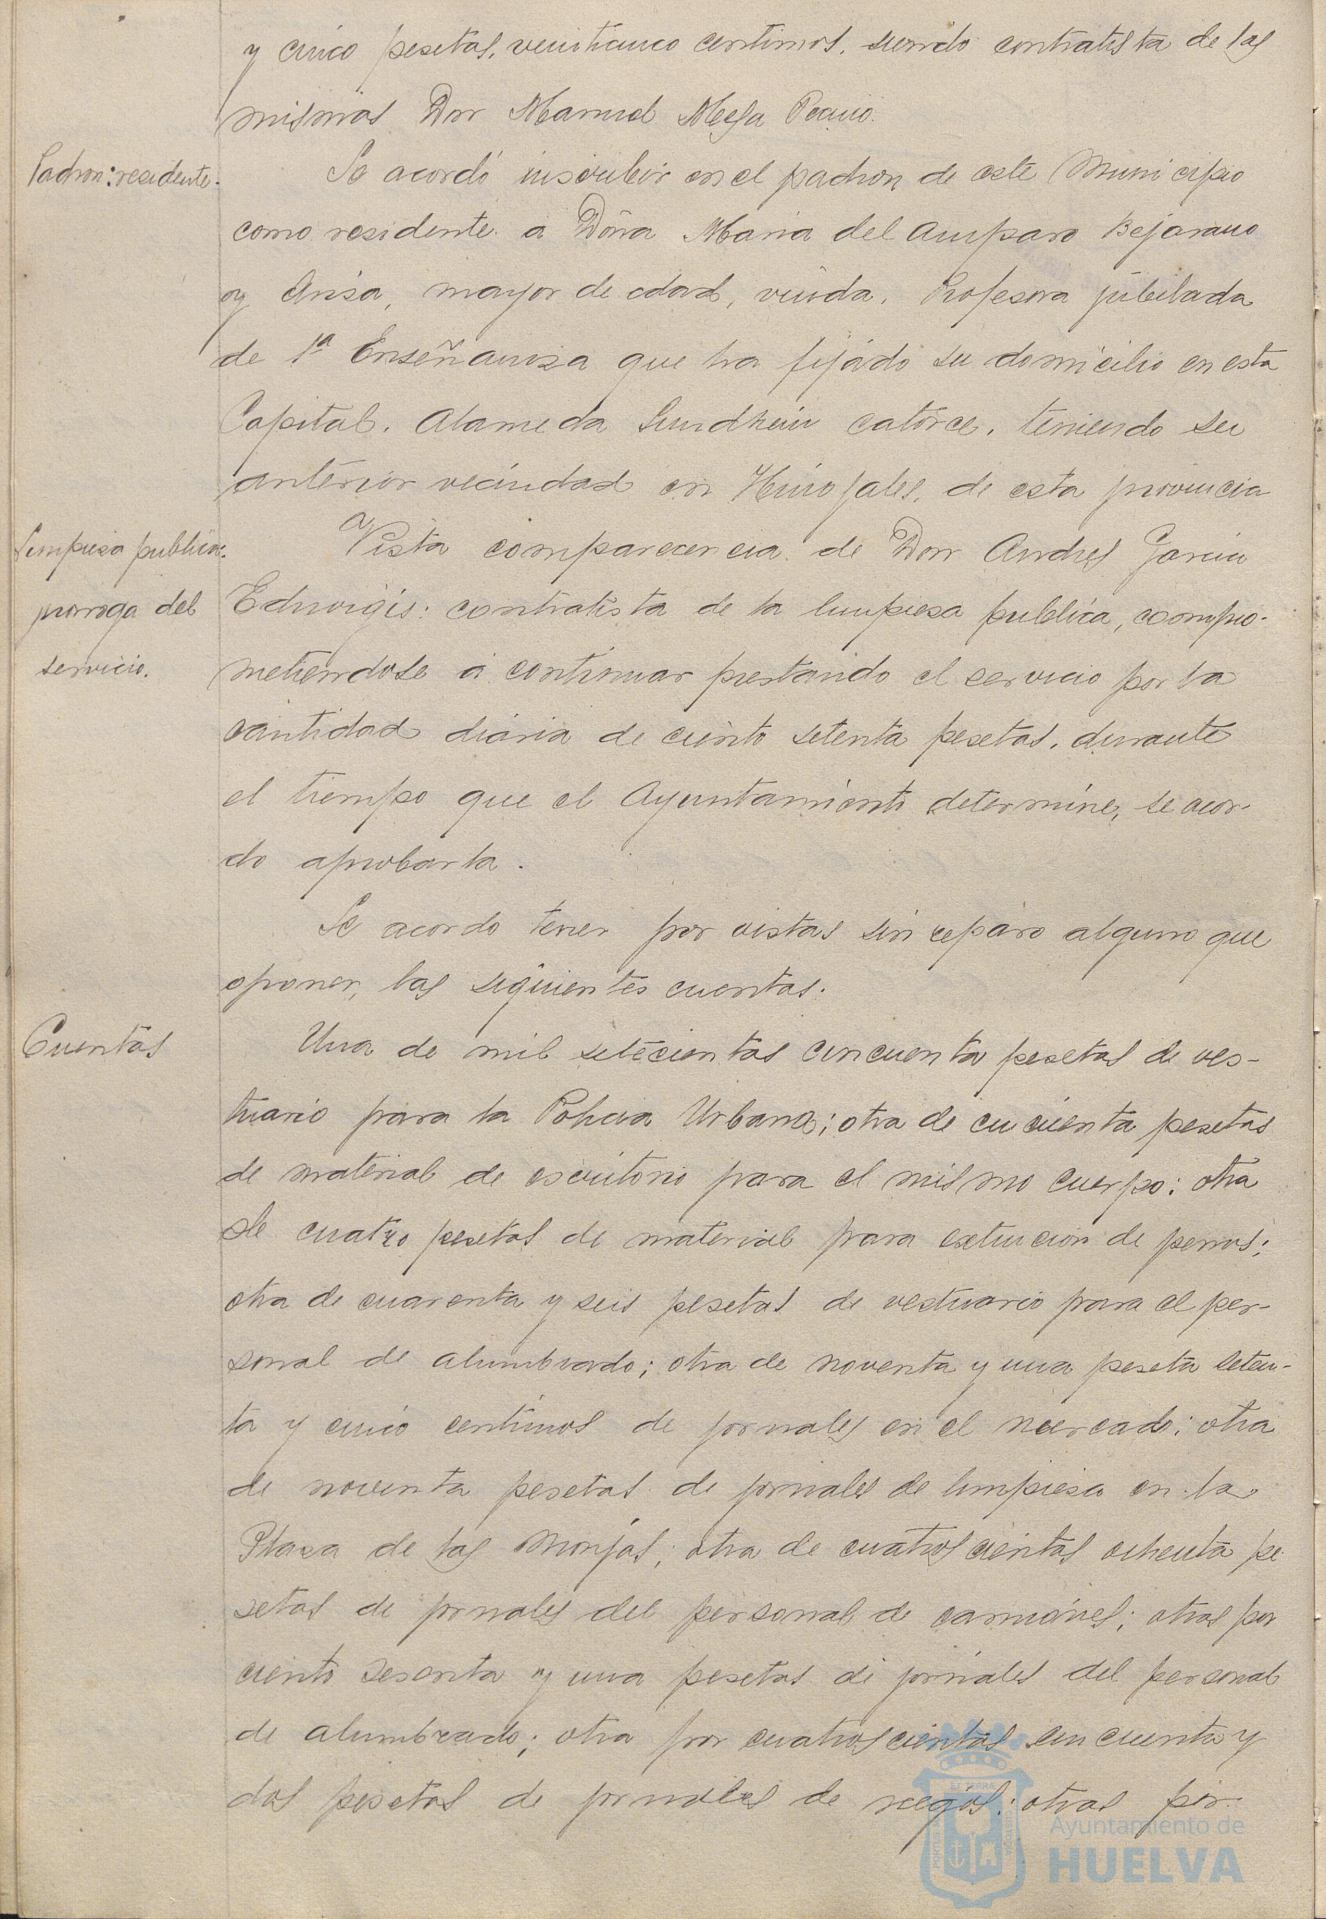 y cinco pesetas, veinticinco centimos. siendo contratista de las
mismas Don Manuel Mesa
Padron: residente.
Se acordó inscribir en el padron de este Municipio
como residente a Doña Maria del Amparo Bejarano
y Ariza, mayor de edad, viuda, Profesora jubilada
de 1ª Enseñanza que ha fijado su domicilio en esta
Capital. Alameda Sundheim catorce, teniendo su
anterior vecindad en Hinojales, de esta provincia
Limpieza publica:
prorroga del
servicio.
Vista comparecencia de Don Andres Garcia
Eduvigis: contratista de la limpieza publica, compro-
metiendose a continuar prestando el servicio por la
cantidad diaria de ciento setenta pesetas, durante
el tiempo que el Ayuntamiento determine, se acor-
do aprobarla.
Se acordo tener por vistas sin reparo alguno que
oponer, las siguientes cuentas.
Cuentas
Una de mil setecientas cincuenta pesetas de ves-
tuario para la Policia Urbana; otra de cincuenta pesetas
de material de escritorio para el mismo cuerpo; otra
de cuatro pesetas de material para extincion de perros;
otra de cuarenta y seis pesetas de vestuario para el per-
sonal de alumbrado; otra de noventa y una peseta seten-
ta y cinco centimos de jornales en el mercado; otra
de noventa pesetas de jornales de limpieza en la
Plaza de las Monjas; otra de cuatroscientas ochenta pe
setas de jornales del personal de camiones; otras por
ciento sesenta y una pesetas de jornales del personal
de alumbrado; otra por cuatroscientas cincuenta y
dos pesetas de jornales de riegos; otras por
Ayuntamiento de
HUELVA